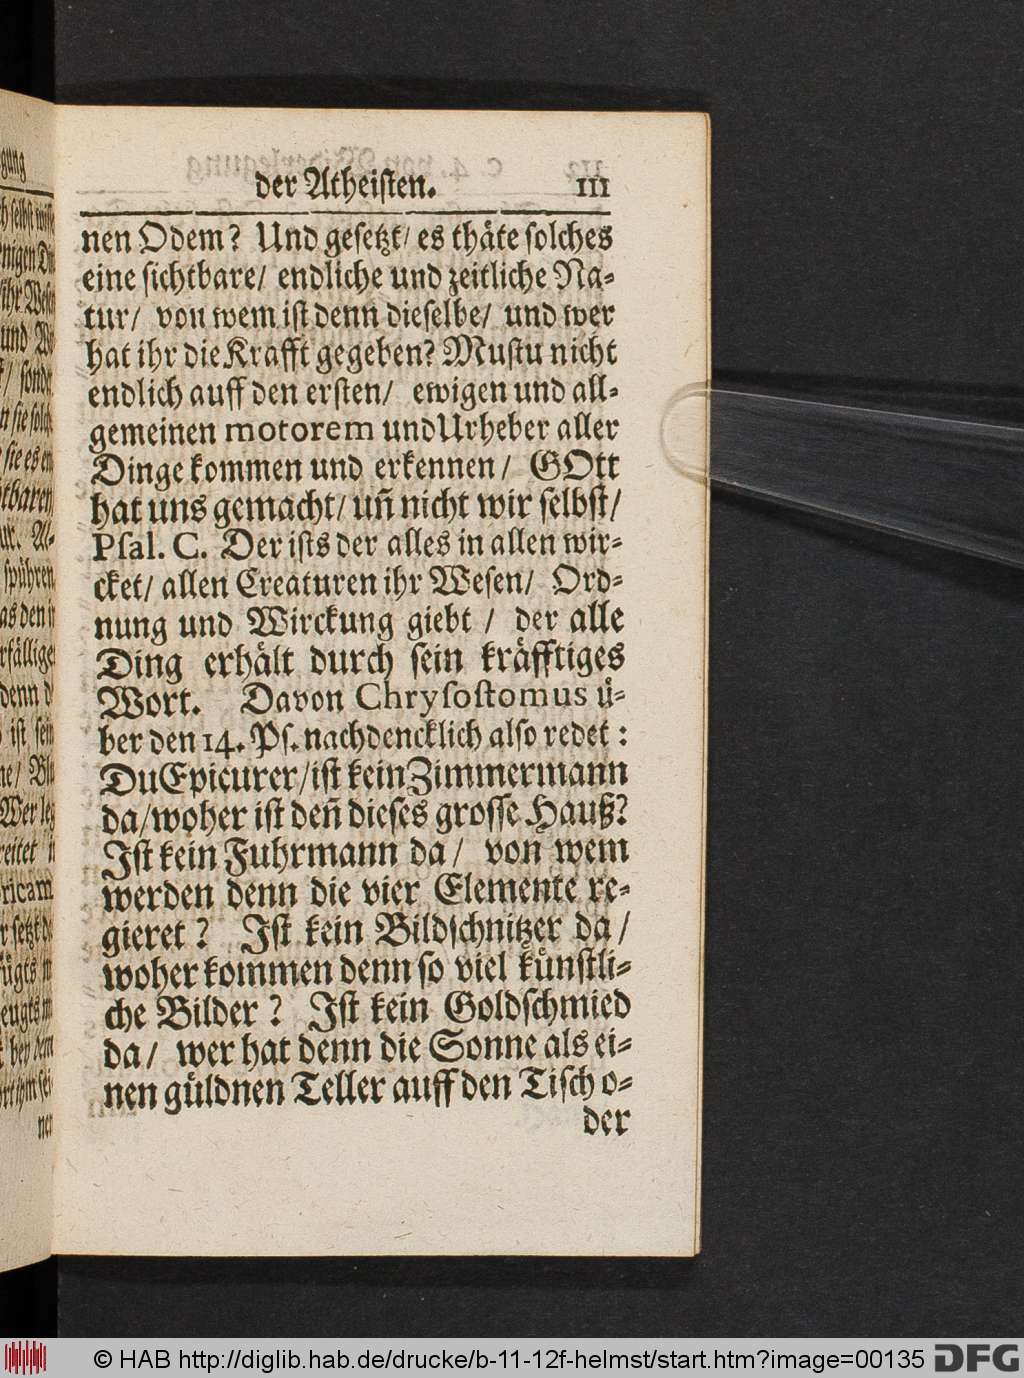 der Atheisten. 111
nen Odem? Und gesetzt/ es thäte solches
eine sichtbare/ endliche und zeitliche Na-
tur/ von wem ist denn dieselbe/ und wer
hat ihr die Krafft gegeben? Mustu nicht
endlich auff den ersten/ ewigen und all-
gemeinen motorem und Urheber aller
Dinge kommen und erkennen/ GOtt
hat uns gemacht/ uñ nicht wir selbst/
Psal. C. Der ists der alles in allen wir-
cket/ allen Creaturen ihr Wesen/ Ord-
nung und Wirckung giebt/ der alle
Ding erhält durch sein kräfftiges
Wort. Davon Chrysostomus ü-
ber den 14. Ps. nachdencklich also redet:
Du Epicurer/ ist kein Zimmermann
da/ woher ist deñ dieses grosse Hauß?
Ist kein Fuhrmann da/ von wem
werden denn die vier Elemente re-
gieret? Ist kein Bildschnitzer da/
woher kommen denn so viel künstli-
che Bilder? Ist kein Goldschmied
da/ wer hat denn die Sonne als ei-
nen güldnen Teller auff den Tisch o-
der
© HAB http://diglib.hab.de/drucke/b-11-12f-helmst/start.htm?image=00135 DFG